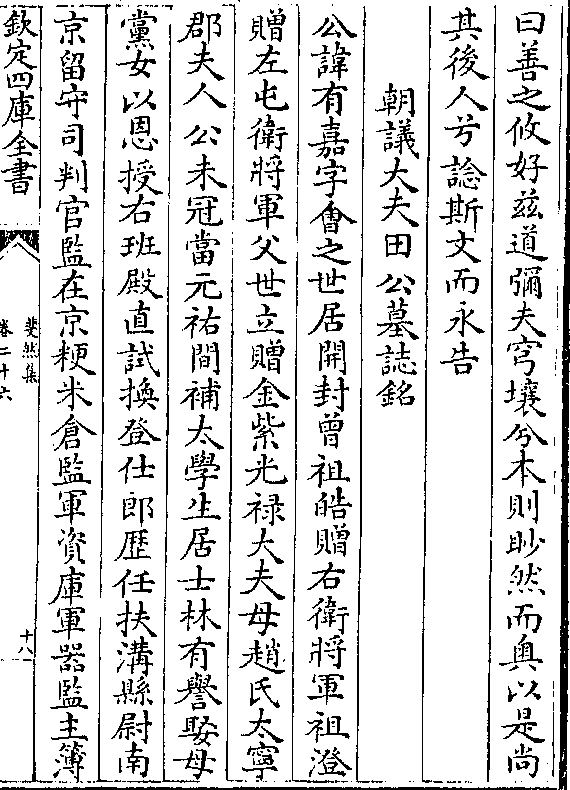 曰善之攸好兹道彌夫穹壤兮本則眇然而奥以是尚
其後人兮諗斯文而永告
朝議大夫田公墓誌銘
公諱有嘉字㑹之世居開封曾祖皓贈右衛將軍祖澄
贈左屯衛將軍父世立贈金紫光禄大夫母趙氏太寧
郡夫人公未冠當元祐間補太學生居士林有譽娶母
黨女以恩授右班殿直試換登仕郎歴任扶溝縣尉南
京留守司判官監在京粳米倉監軍資庫軍器監主簿
欽定四庫全書
斐然集
卷二十六
十八